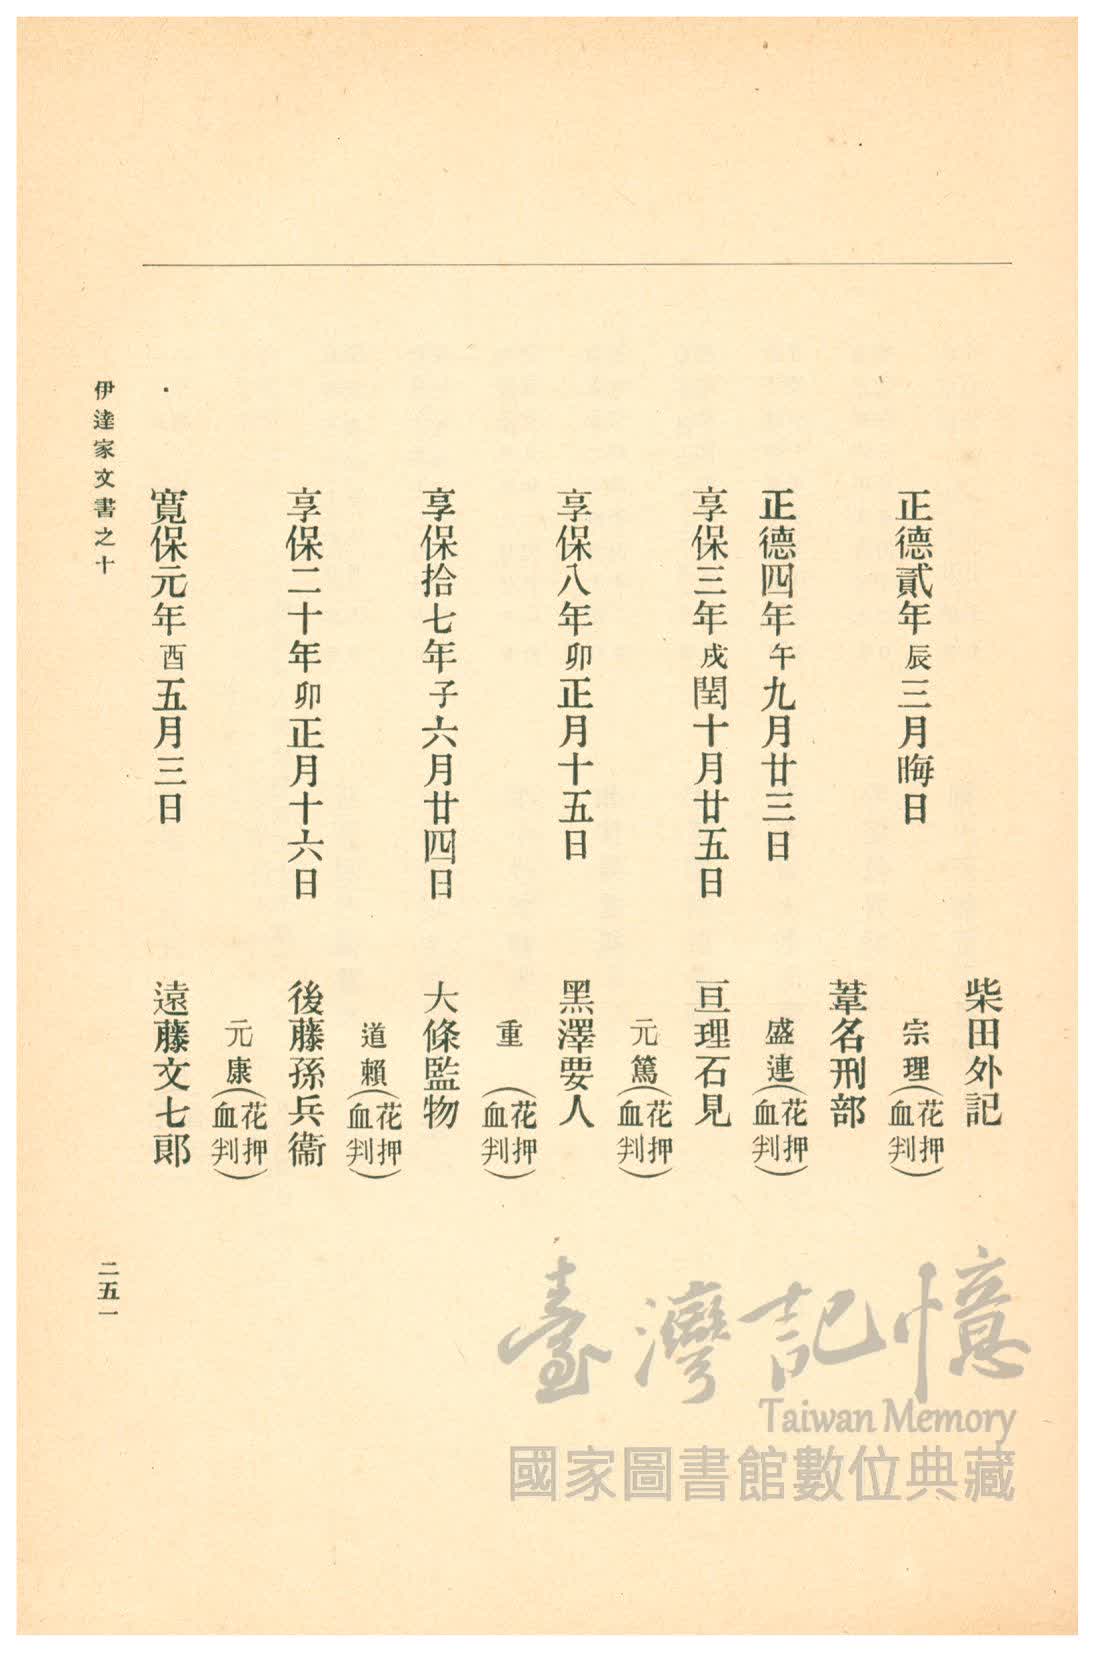 柴田外記
正德貳年辰三月晦日
宗理(花押)(血判)
葦名刑部
正德四年午九月廿三日
盛連(花押)(血判)
亘理石見
享保三年戌閏十月廿五日
元篤(花押)(血判)
黑澤要人
享保八年卯正月十五日
重(花押)(血判)
大條監物
享保拾七年子六月廿四日
道賴(花押)(血判)
後藤孫兵衞
享保二十年卯正月十六日
元康(花押)(血判)
遠藤文七郞
寬保元年酉五月三日
伊達家文書之十
二五一
臺灣記憶
Taiwan Memory
國家圖書館數位典藏